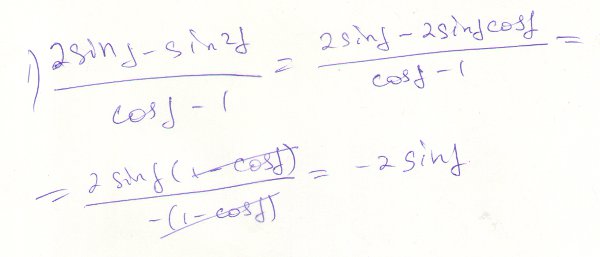 1) (2sinf - sin2f)/(cosf - 1) = (2sinf - 2sinfcosf)/(cosf - 1) =
= (2sinf(1 - cosf))/(-(1 - cosf)) = -2sinf